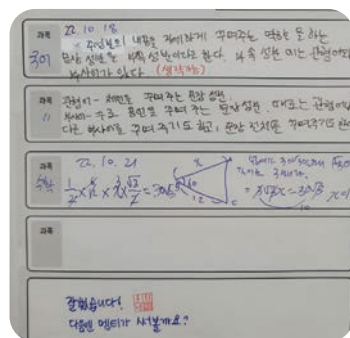 과목
22. 10. 18
국어
* 부속성분: 내용을 자세하게 꾸며주는 역할을 하는
문장 성분을 부속 성분이라고 한다. 부속 성분에는 관형어와
부사어가 있다 (생략가능)
과목
관형어- 체언을 꾸며 주는 문장 성분.
부사어- 주로 용언을 꾸며 주는 문장 성분. 때로는 관형어나
다른 부사어를 꾸며 주기도 하고, 문장 전체를 꾸며주기도 한
과목
22. 10. 21
수학
12
과목
잘했습니다!
다음엔 멘티가 써볼까요?